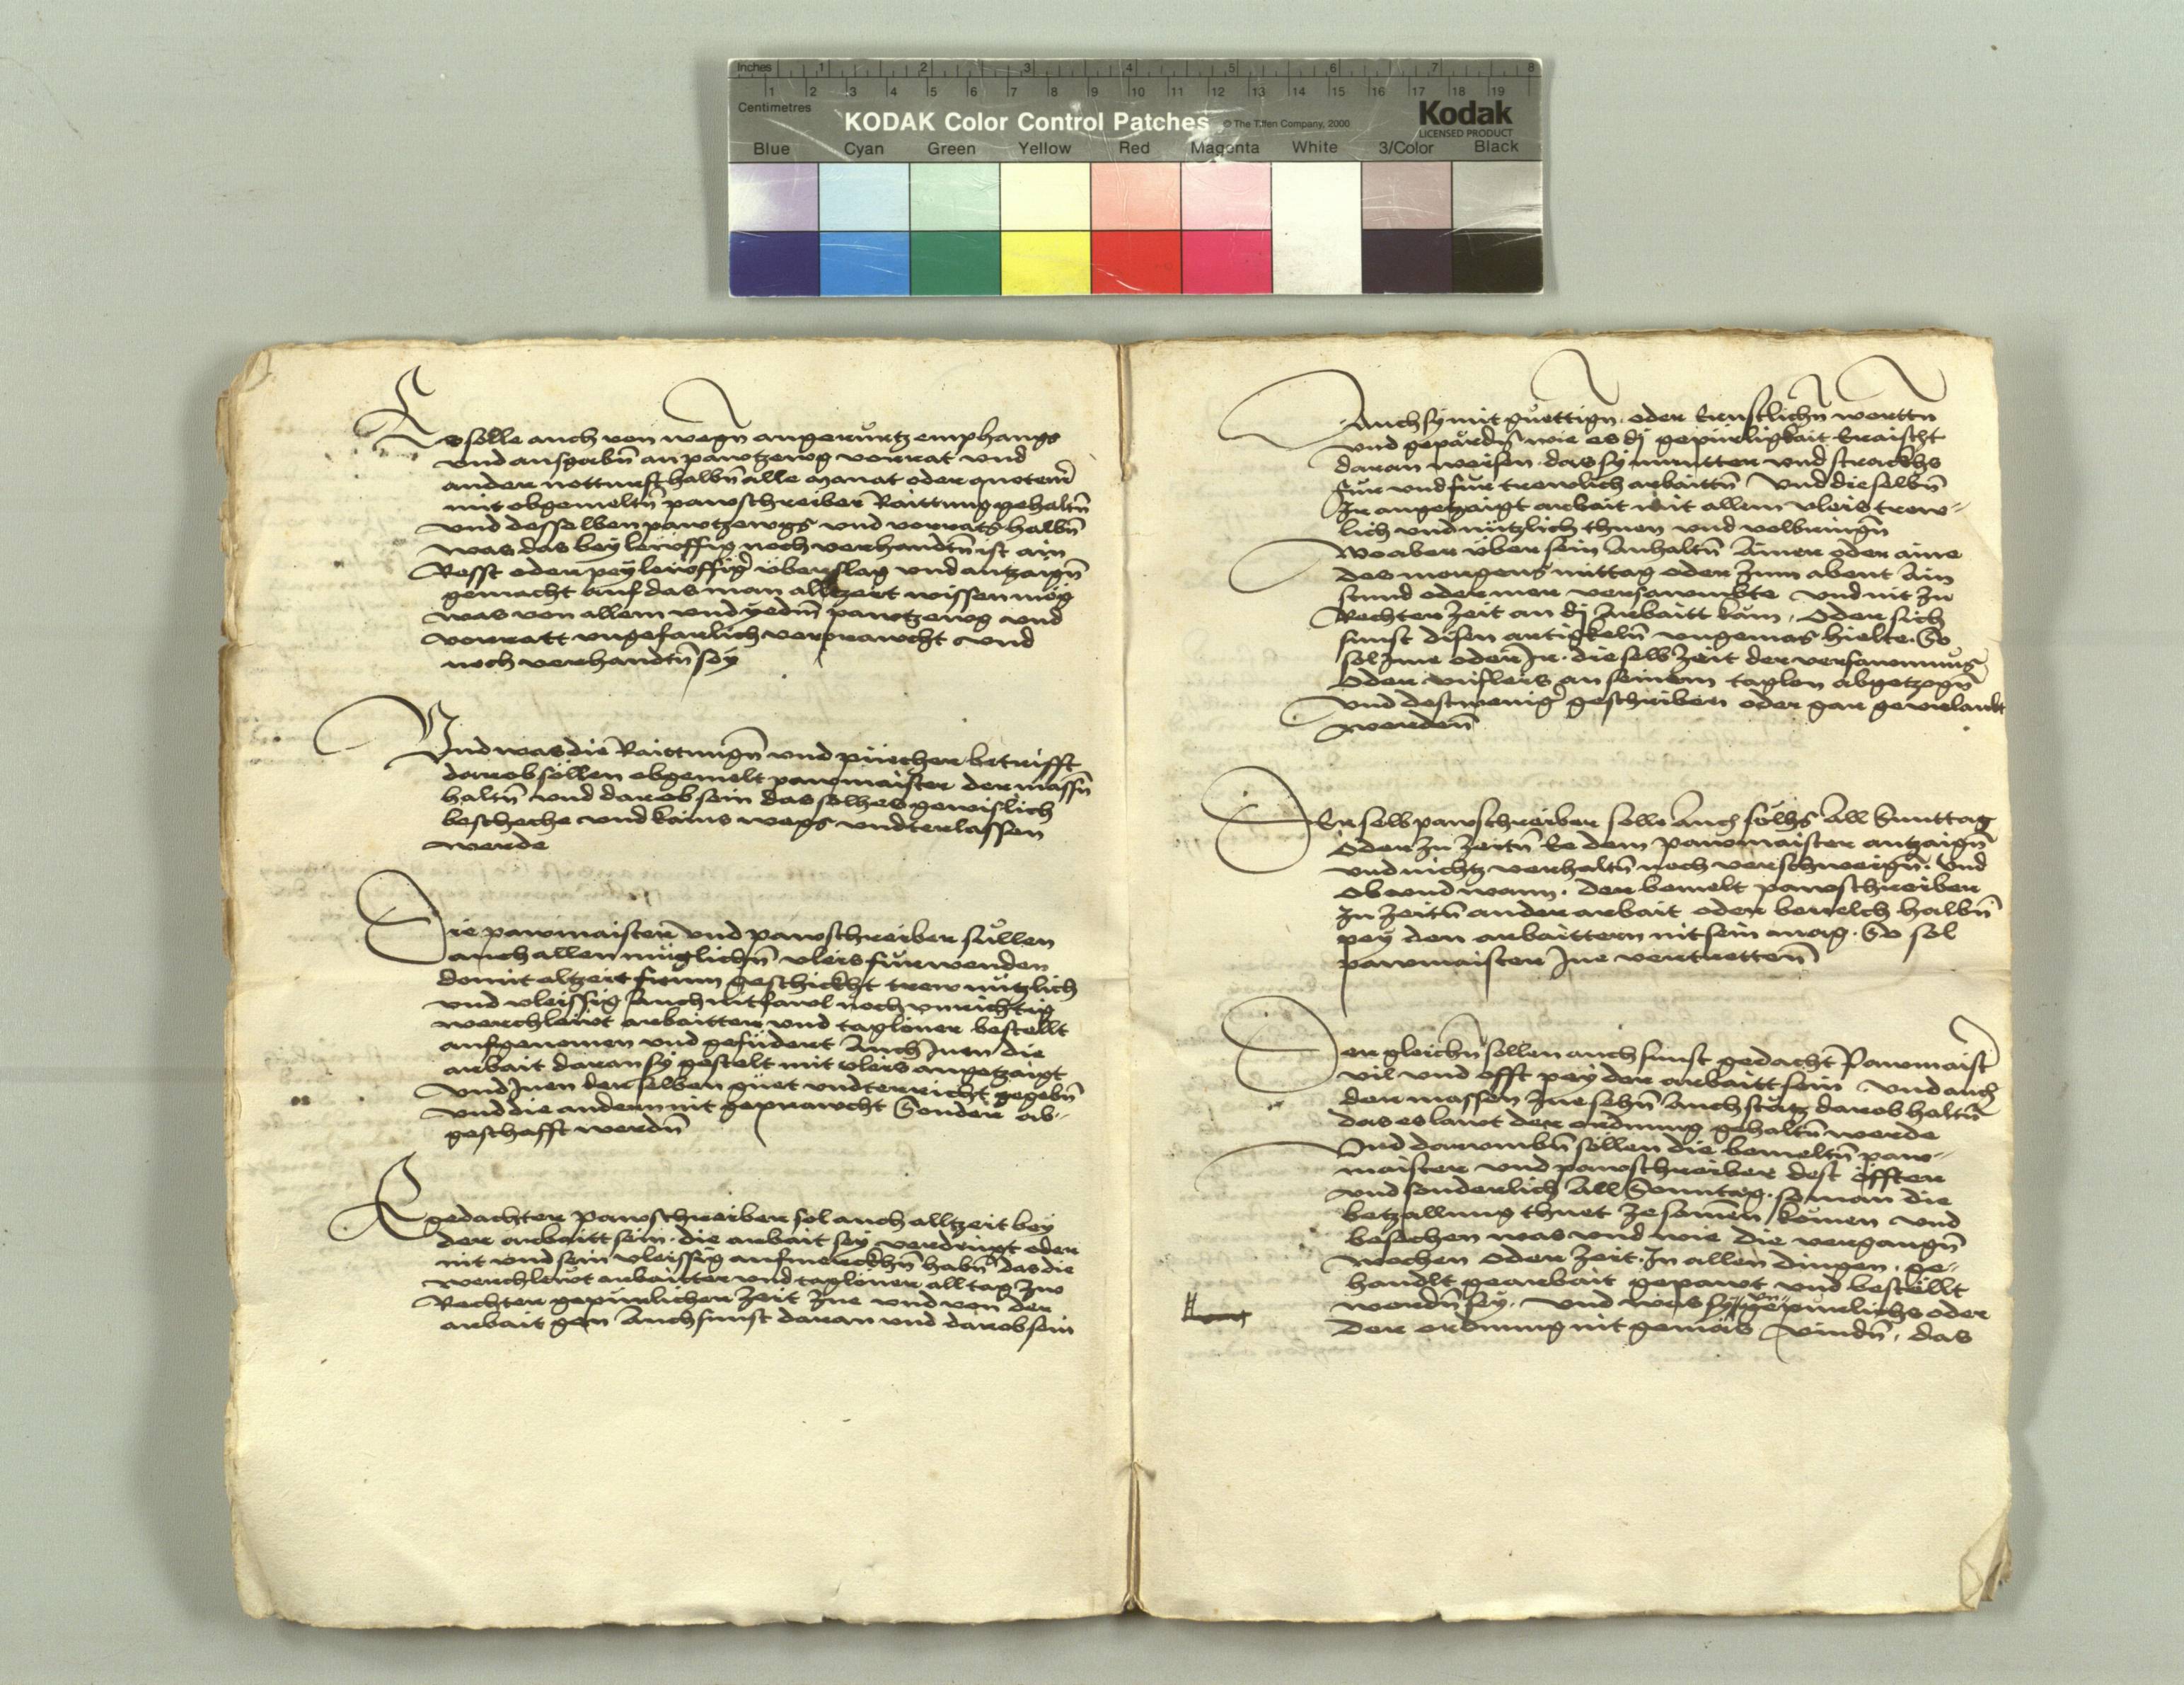 Inches 1 2 3 4 5 6 7 8
1 2 3 4 5 6 7 8 9 10 11 12 13 14 15 16 17 18 19
Centimetres
KODAK Color Control Patches © The Tiffen Company, 2000 Kodak
LICENSED PRODUCT
Blue Cyan Green Yellow Red Magenta White 3/Color Black
Es solle auch von wegn angerürtz emphangs
und ausgabn an pawtzewg vorrat und
ander notturfft halbn alle monat oder quotemer
mit obgemeltn pawschreiber Raittung gehaltn
und desselben pawtzewgs und vorrats halbn
was das beyleüffig noch verhandtn ist ain
Resst oder peyleüffig überslag und antzaign
gemacht auf das man alltzeit wissen mög
was von allem und yedm pawtzewg und
vorratt ungefarlich verprawcht und
noch verhandtn sey
Und was die Raittungn und püecher betrifft
darob söllen obgemelt pawmaister dermassn
haltn und darob sein das solhes gewislich
beschehe und kains wegs undterlassen
werde
Die pawmaister und pawschreiber süllen
auch allen müglichn vleis fürwenden
domit altzeit frumm geschickht trew nützlich
und vleissig Auch nit fawl noch unrichtig
werchlewt arbaitter und taglöner bestellt
aufgenomen und gefüdert Auch Inen die
arbait daran sy gestelt mit vleis angetzaigt
und Inen derselben güet undterricht gegebn
und die andern nit geprawcht Sonder ab-
geschafft werdn
Egedachter pawschreiber sol auch alltzeit bey
der arbaitt sein. die arbait sey verdingt oder
nit und sein vleissig aufmerckhn habn das die
werchlewt arbaitter und taglöner all tag zw
Rechter gepürlicher zeit zue und von der
arbait gen Auch sunst daran und darob sein
Auch sy mit güettign. oder Ernstlichn wortten
und gepärdn wie es dj gepürligkait Eraischt
daran weisen. das sy munter und strackhs
für und für trewlich arbaittn Und dieselbn
Ir angetzaigt arbait mit allem vleis trew-
lich und nützlich thuen und volbringn
Wo aber über sein Anhaltn Ainer oder aine
des morgens mittag oder zum abent Ain
stund oder mer versawmbte und nit zu
Rechter zeit an dj Arbaitt käm, Oder sich
sunst disen artigkeln ungemäs hielte. So
sol Ime oder Ir. dieselb zeit der versawmnus
Oder unfleis an seinem taglon abgetzogn
und destweniger geschriben oder gar geurlaubt
werden
DEr selb pawschreiber solle Auch solhs All Sunttag
Oder zu zeitn Ee dem pawmaister antzaign
und nichtz verhaltn noch verschweign. Und
Ob und wann. der bemelt pawschreiber
zu zeitn ander arbait oder bevelch halbn
pey den arbaittern nit sein mag. So sol
pawmaister Ine vertretten
Der gleichn söllen auch sunst gedacht Pawmaister
vil und offt pey der arbaitt sein und auch
dermassen zuesehn Auch stätz darob haltn
das es lawt der ordnung gehaltn werde
Und darumbn söllen die bemeltn paw-
maister und pawschreiber dest öffter
und sonderlich All Sonntag. so man die
betzallung thuet zesamen kömen und
besehen was und wie die vergangn
wochen oder zeit. In allen dingen. ge-
handlt gearbait gepawt und bestellt
wordn sey. und was sy un gepürlichs oder
Der ordnung nit gemäs vindn. das